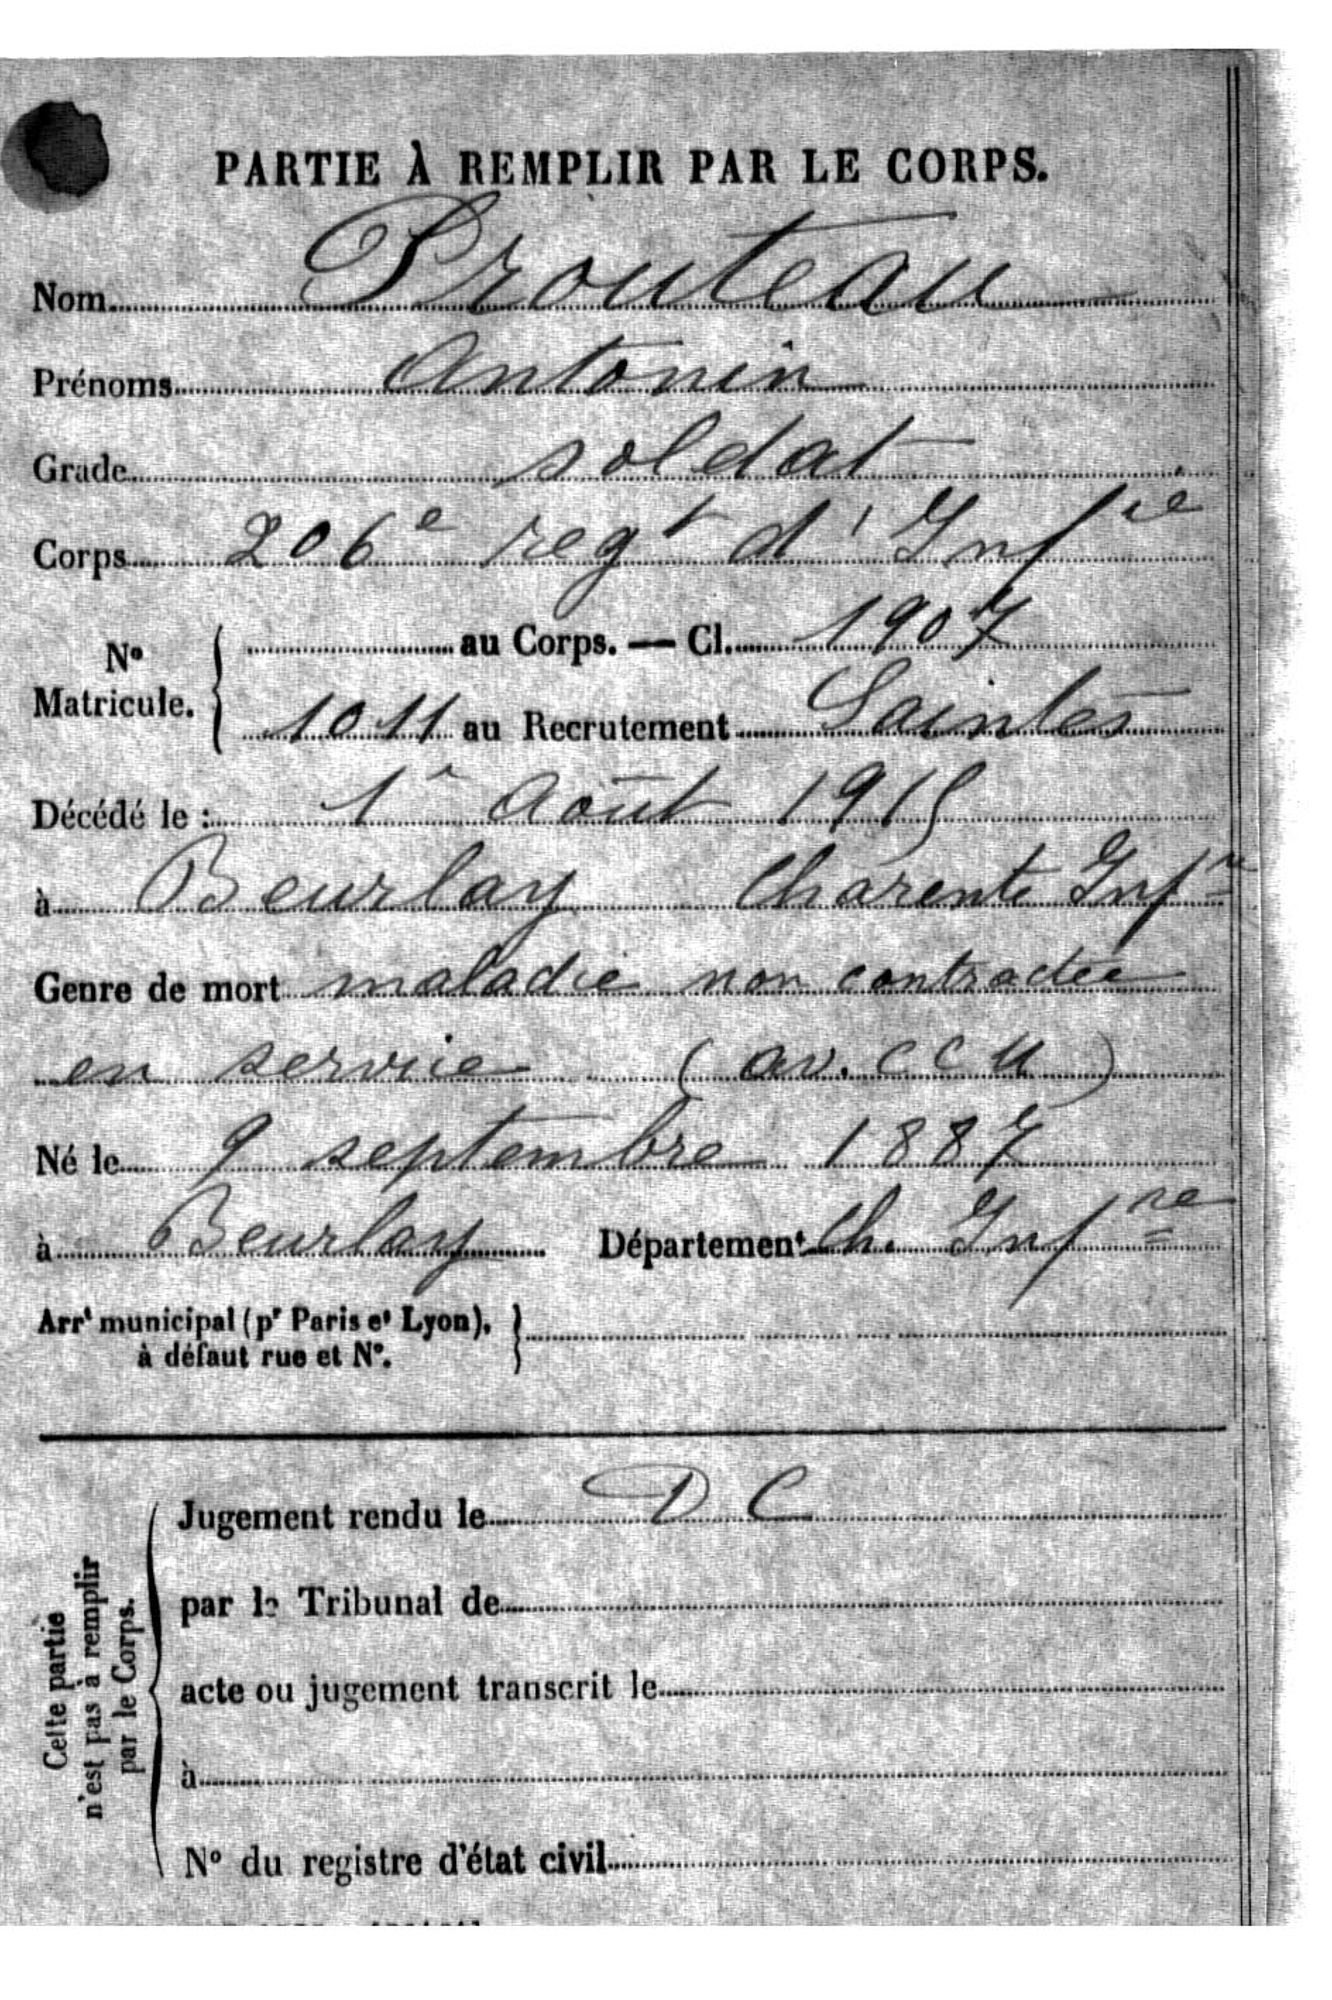 PARTIE À REMPLIR PAR LE CORPS.
Nom Prouteau
Prénoms Antonin
Grade soldat
Corps 206e regt d'Infie
No Matricule. { au Corps. — Cl. 1907
1011 au Recrutement Saintes
Décédé le : 1r Août 1915
à Beurlay Charente Infre
Genre de mort maladie non contractée
en service (av. CCM)
Né le 9 septembre 1887
à Beurlay Département Ch. Infre
Arrt municipal (pr Paris et Lyon),
à défaut rue et No.
Jugement rendu le D C
par le Tribunal de
acte ou jugement transcrit le
à
No du registre d'état civil
Cette partie
n'est pas à remplir
par le Corps.